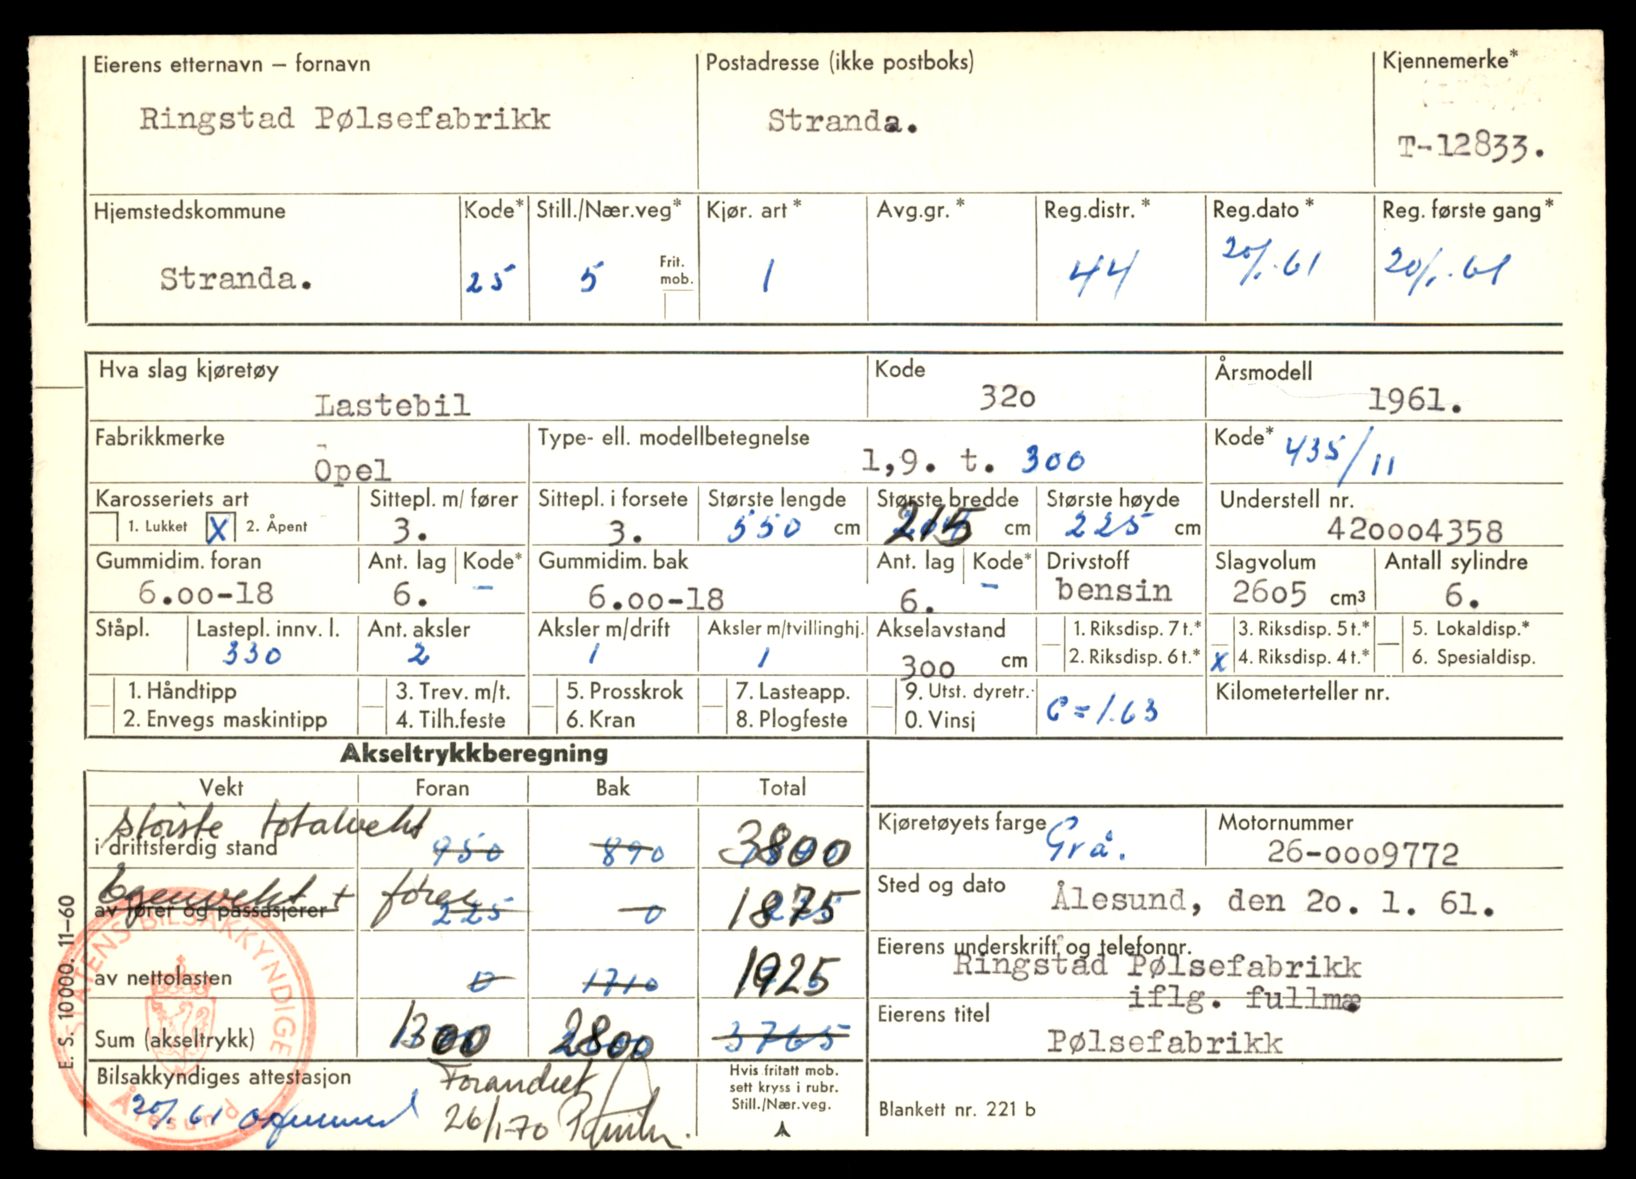 Eierens etternavn – fornavn Postadresse (ikke postboks) Kjennemerke*
Ringstad Pølsefabrikk Stranda. T-12833.
Hjemstedskommune Kode* Still./Nær.veg* Kjør. art* Avg.gr.* Reg.distr.* Reg.dato* Reg. første gang*
Frit. mob.
Stranda. 25 5 1 44 20/1.61 20/1.61
Hva slag kjøretøy Kode Årsmodell
Lastebil 320 1961.
Fabrikkmerke Type- ell. modellbetegnelse Kode* 435/11
Opel 1,9. t. 300
Karosseriets art Sittepl. m/ fører Sittepl. i forsete Største lengde Største bredde Største høyde Understell nr.
1. Lukket X 2. Åpent 3. 3. 550 cm 215 cm 225 cm 420004358
Gummidim. foran Ant. lag Kode* Gummidim. bak Ant. lag Kode* Drivstoff Slagvolum Antall sylindre
6.00-18 6. – 6.00-18 6. – bensin 2605 cm³ 6.
Ståpl. Lastepl. innv. l. Ant. aksler Aksler m/drift Aksler m/tvillinghj. Akselavstand 1. Riksdisp. 7 t.* 3. Riksdisp. 5 t.* 5. Lokaldisp.*
330 2 1 1 300 cm 2. Riksdisp. 6 t.* X 4. Riksdisp. 4 t.* 6. Spesialdisp.
1. Håndtipp 3. Trev. m/t. 5. Prosskrok 7. Lasteapp. 9. Utst. dyretr. C = 1.63 Kilometerteller nr.
2. Envegs maskintipp 4. Tilh.feste 6. Kran 8. Plogfeste 0. Vinsj
Akseltrykkberegning
Vekt Foran Bak Total
største totalvekt
i driftsferdig stand 950 890 3800 Kjøretøyets farge Grå. Motornummer 26-0009772
Egenvekt + fører
av fører og passasjerer 225 0 1875 Sted og dato Ålesund, den 20. 1. 61.
Eierens underskrift og telefonnr.
av nettolasten 0 1710 1925 Ringstad Pølsefabrikk
iflg. fullmæ
Sum (akseltrykk) 1300 2800 3765 Eierens titel
Pølsefabrikk
Bilsakkyndiges attestasjon Forandret Hvis fritatt mob. sett kryss i rubr. Still./Nær.veg.
20/1.61 26/1-70 Blankett nr. 221 b
E. S. 10 000. 11–60
STATENS BILSAKKYNDIGE
Ålesund